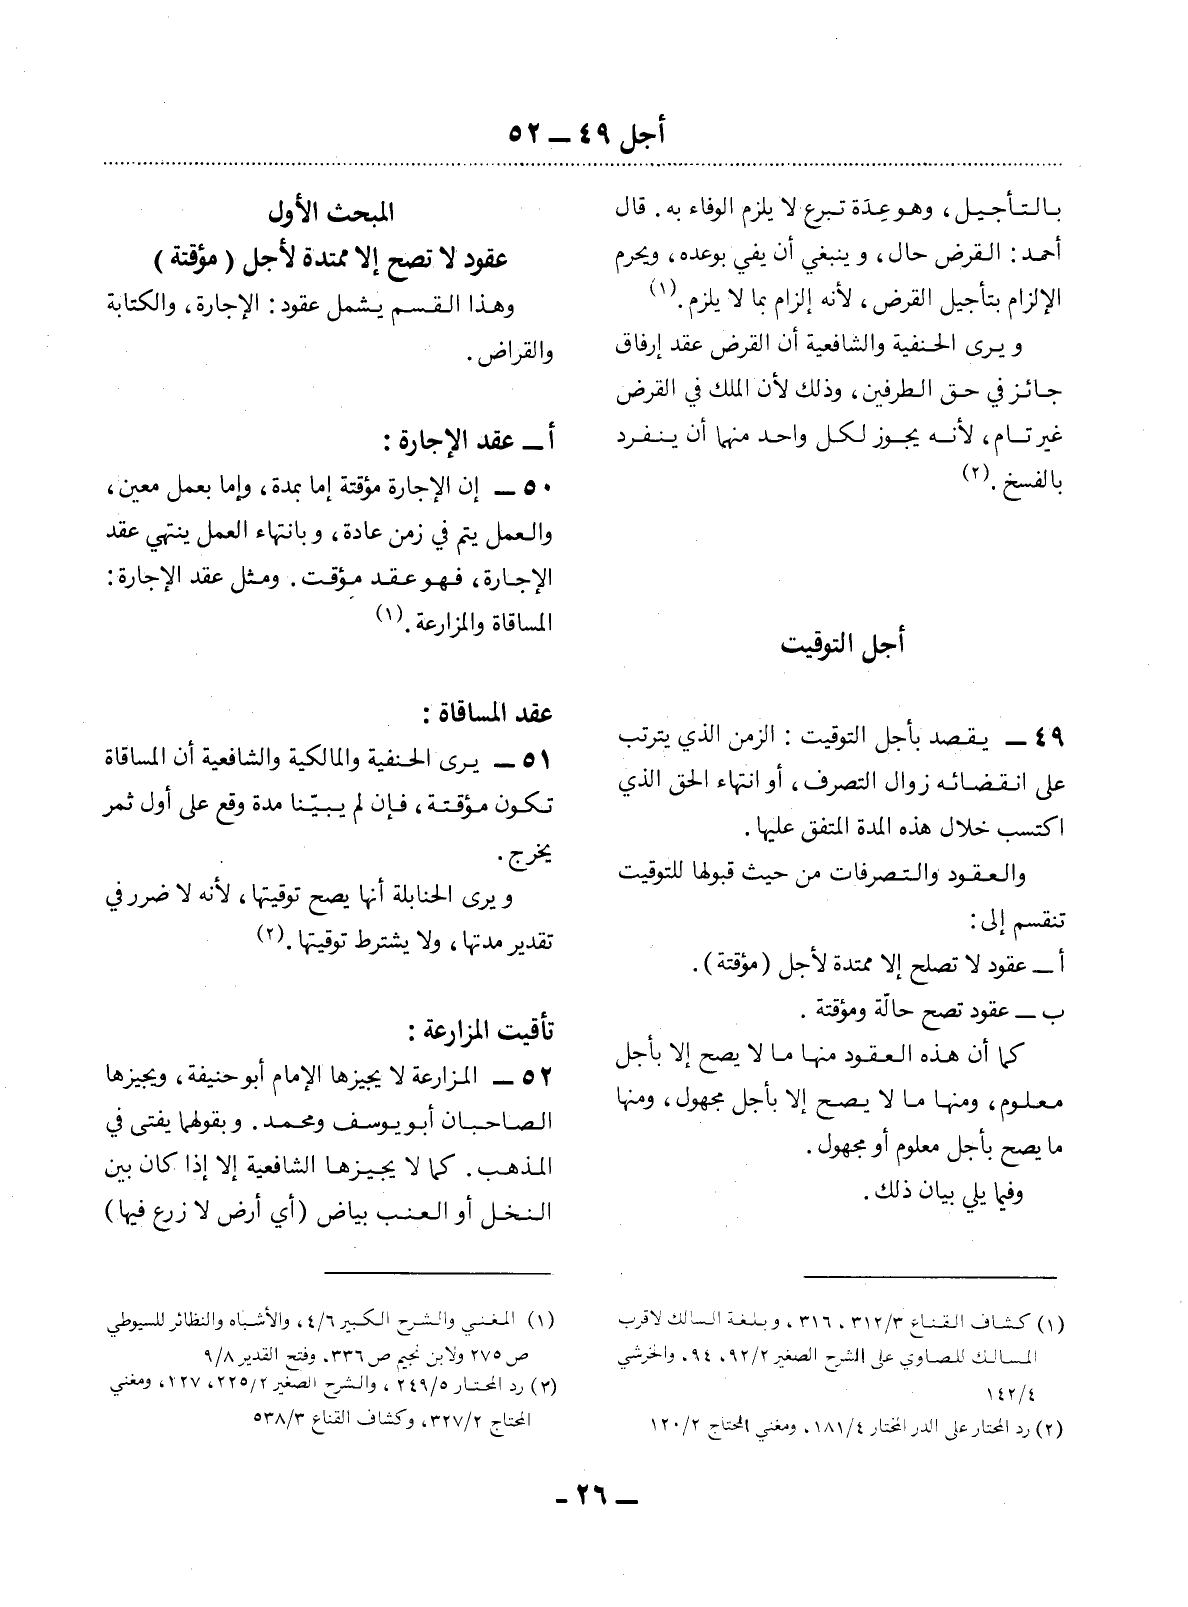 أجل ٤٩ ــ ٥٢
بالتأجيل، وهو عِدَة تبرع لا يلزم الوفاء به. قال
أحمد: القرض حال، وينبغي أن يفي بوعده، ويحرم
الإلزام بتأجيل القرض، لأنه إلزام بما لا يلزم.(١)
ويرى الحنفية والشافعية أن القرض عقد إرفاق
جائز في حق الطرفين، وذلك لأن الملك في القرض
غير تام، لأنه يجوز لكل واحد منهما أن ينفرد
بالفسخ.(٢)
أجل التوقيت
٤٩ ــ يقصد بأجل التوقيت: الزمن الذي يترتب
على انقضائه زوال التصرف، أو انتهاء الحق الذي
اكتسب خلال هذه المدة المتفق عليها.
والعقود والتصرفات من حيث قبولها للتوقيت
تنقسم إلى:
أ ــ عقود لا تصلح إلا ممتدة لأجل (مؤقتة).
ب ــ عقود تصح حالّة ومؤقتة.
كما أن هذه العقود منها ما لا يصح إلا بأجل
معلوم، ومنها ما لا يصح إلا بأجل مجهول، ومنها
ما يصح بأجل معلوم أو مجهول.
وفيما يلي بيان ذلك.
(١) كشاف القناع ٣١٢/٣، ٣١٦، وبلغة السالك لاقرب
المسالك للصاوي على الشرح الصغير ٩٢/٢، ٩٤، والخرشي
١٤٢/٤
(٢) رد المحتار على الدر المختار ١٨١/٤، ومغني المحتاج ١٢٠/٢
المبحث الأول
عقود لا تصح إلا ممتدة لأجل (مؤقتة)
وهذا القسم يشمل عقود: الإجارة، والكتابة
والقراض.
أ ــ عقد الإجارة:
٥٠ ــ إن الإجارة مؤقتة إما بمدة، وإما بعمل معين،
والعمل يتم في زمن عادة، وبانتهاء العمل ينتهي عقد
الإجارة، فهو عقد مؤقت. ومثل عقد الإجارة:
المساقاة والمزارعة.(١)
عقد المساقاة:
٥١ ــ يرى الحنفية والمالكية والشافعية أن المساقاة
تكون مؤقتة، فإن لم يبيّنا مدة وقع على أول ثمر
يخرج.
ويرى الحنابلة أنها يصح توقيتها، لأنه لا ضرر في
تقدير مدتها، ولا يشترط توقيتها.(٢)
تأقيت المزارعة:
٥٢ ــ المزارعة لا يجيزها الإمام أبو حنيفة، ويجيزها
الصاحبان أبو يوسف ومحمد. وبقولهما يفتى في
المذهب. كما لا يجيزها الشافعية إلا إذا كان بين
النخل أو العنب بياض (أي أرض لا زرع فيها)
(١) المغني والشرح الكبير ٤/٦، والأشباه والنظائر للسيوطي
ص ٢٧٥ ولابن نجيم ص ٣٣٦، وفتح القدير ٩/٨
(٣) رد المحتار ٢٤٩/٥، والشرح الصغير ٢٢٥/٢، ٢٢٧، ومغني
المحتاج ٣٢٧/٢، وكشاف القناع ٥٣٨/٣
ــ ٢٦ -